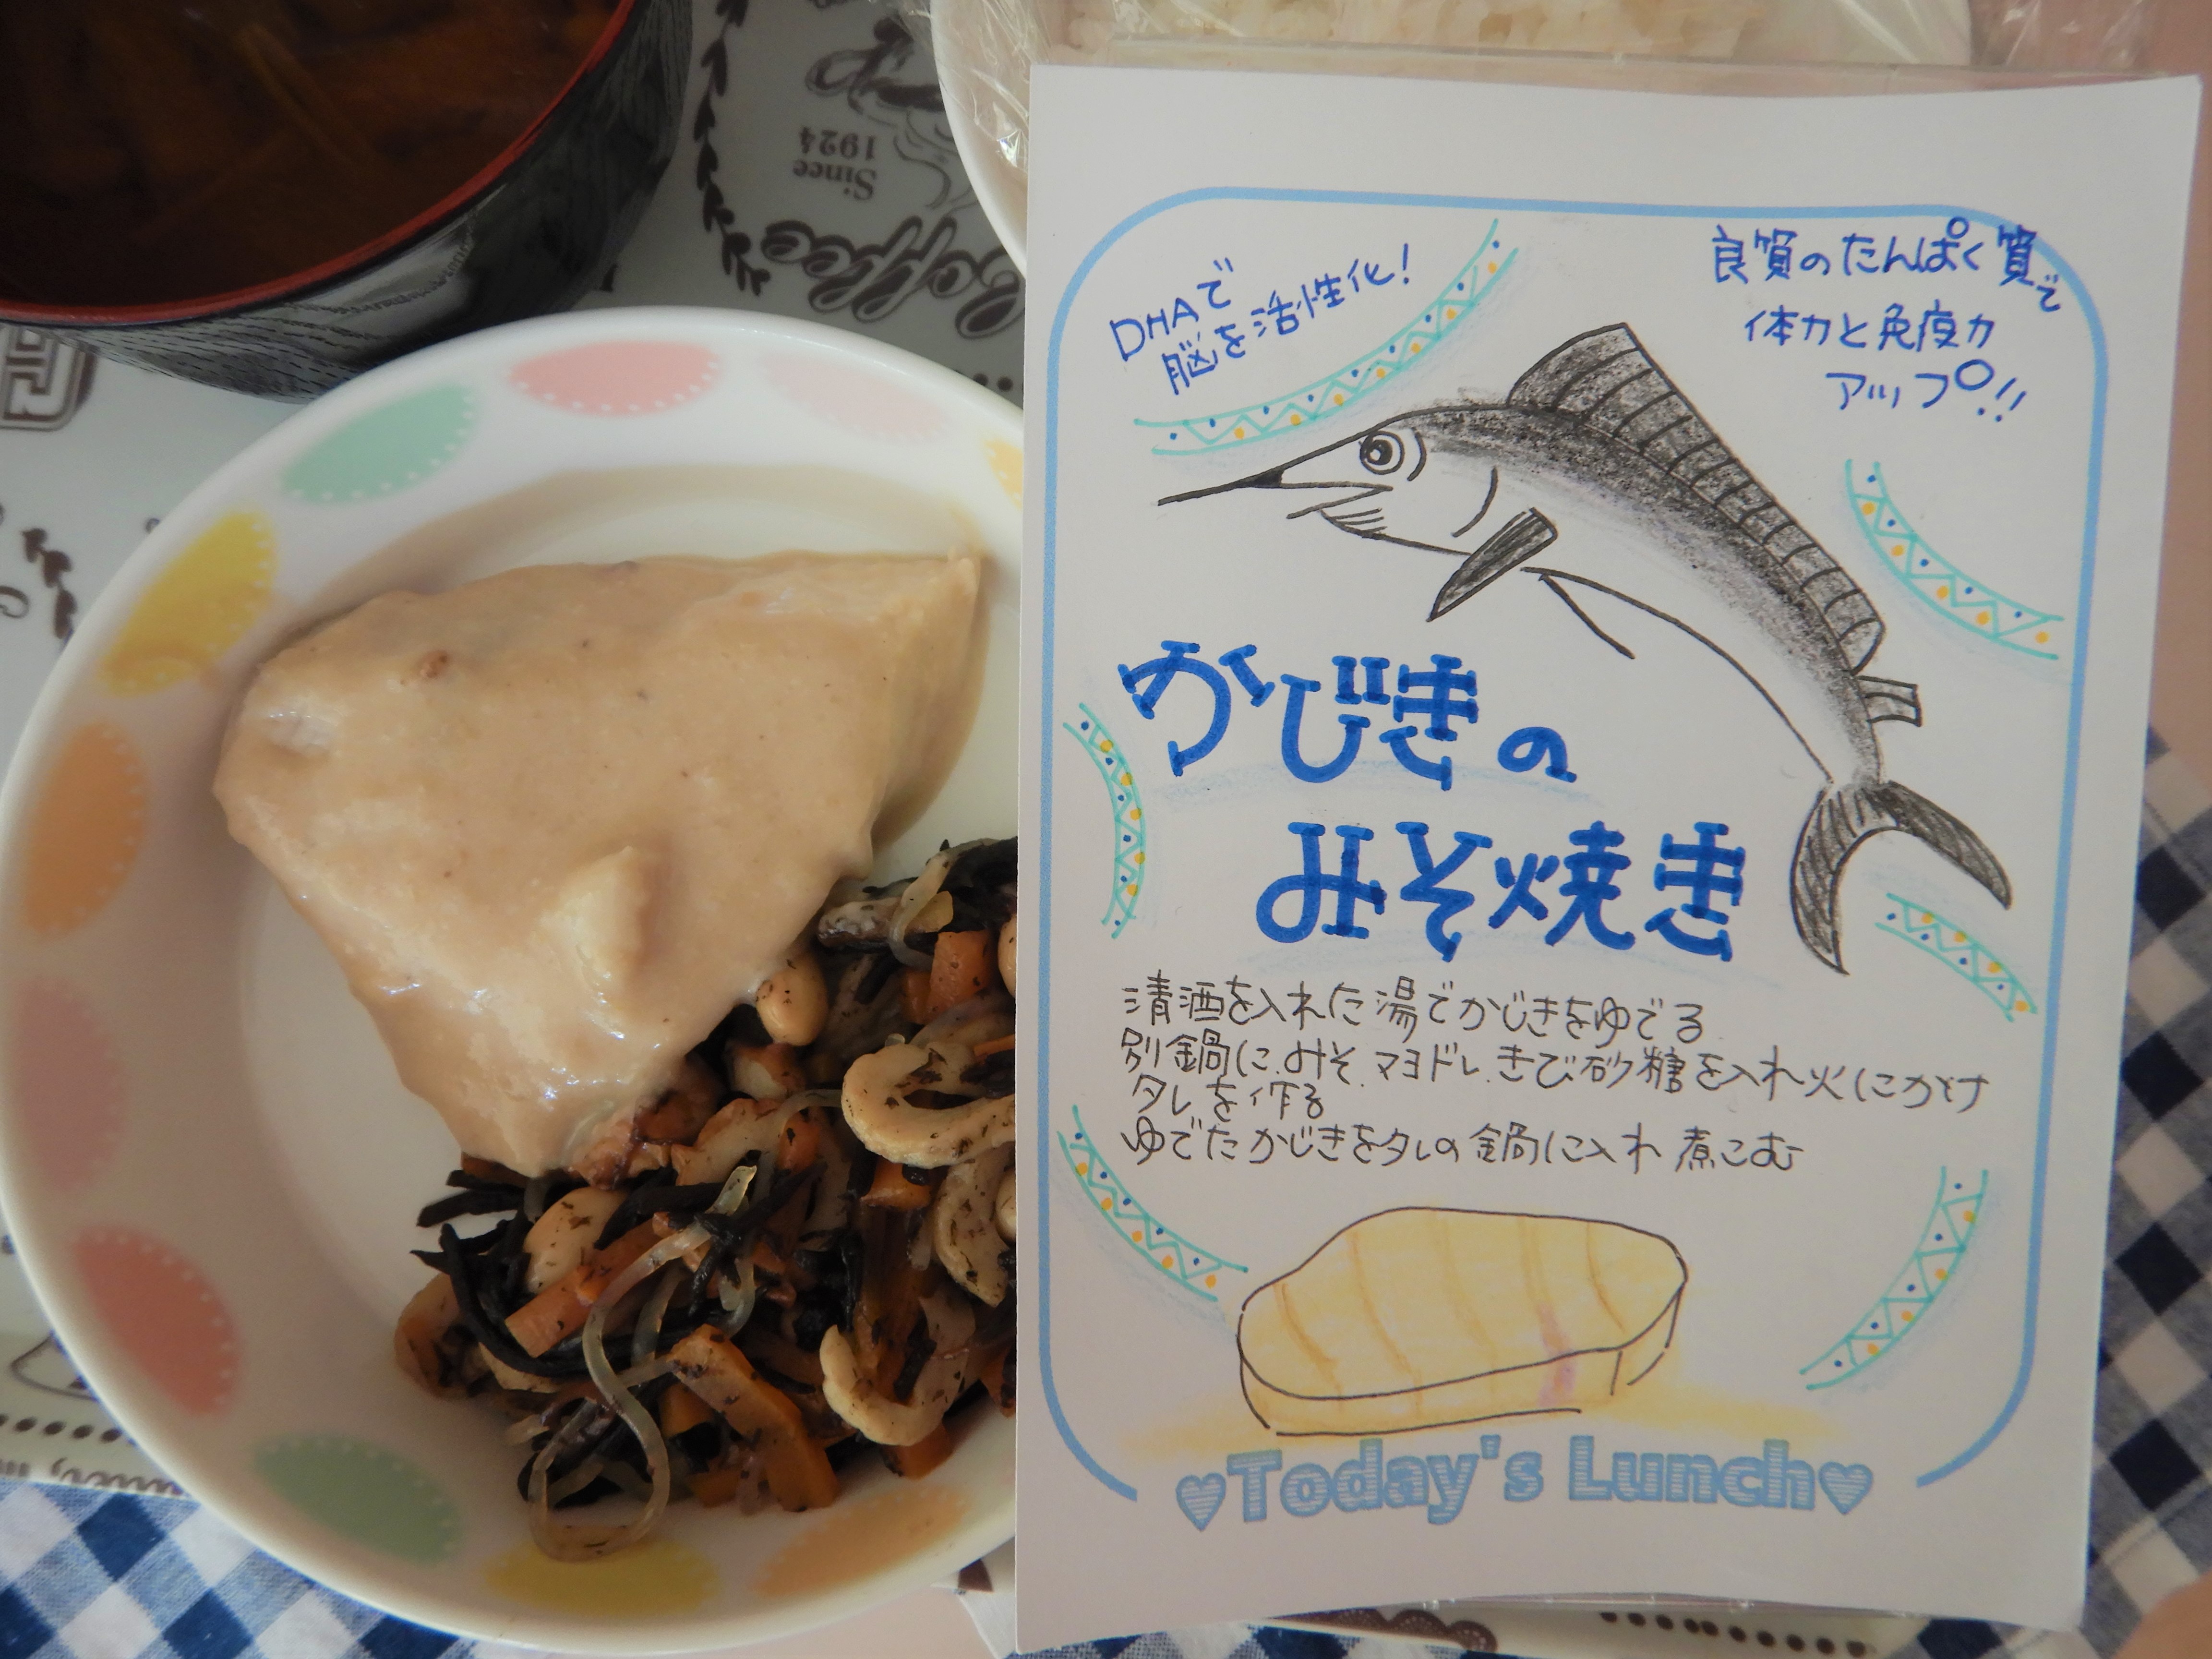 Coffee
Since
1924
DHAで
脳を活性化!
良質のたんぱく質で
体力と免疫力
アップ!!
かじきの
みそ焼き
清酒を入れた湯でかじきをゆでる
別鍋に.みそ.マヨドレ.きび砂糖を入れ火にかけ
タレを作る
ゆでたかじきをタレの鍋に入れ煮こむ
♥Today's Lunch♥